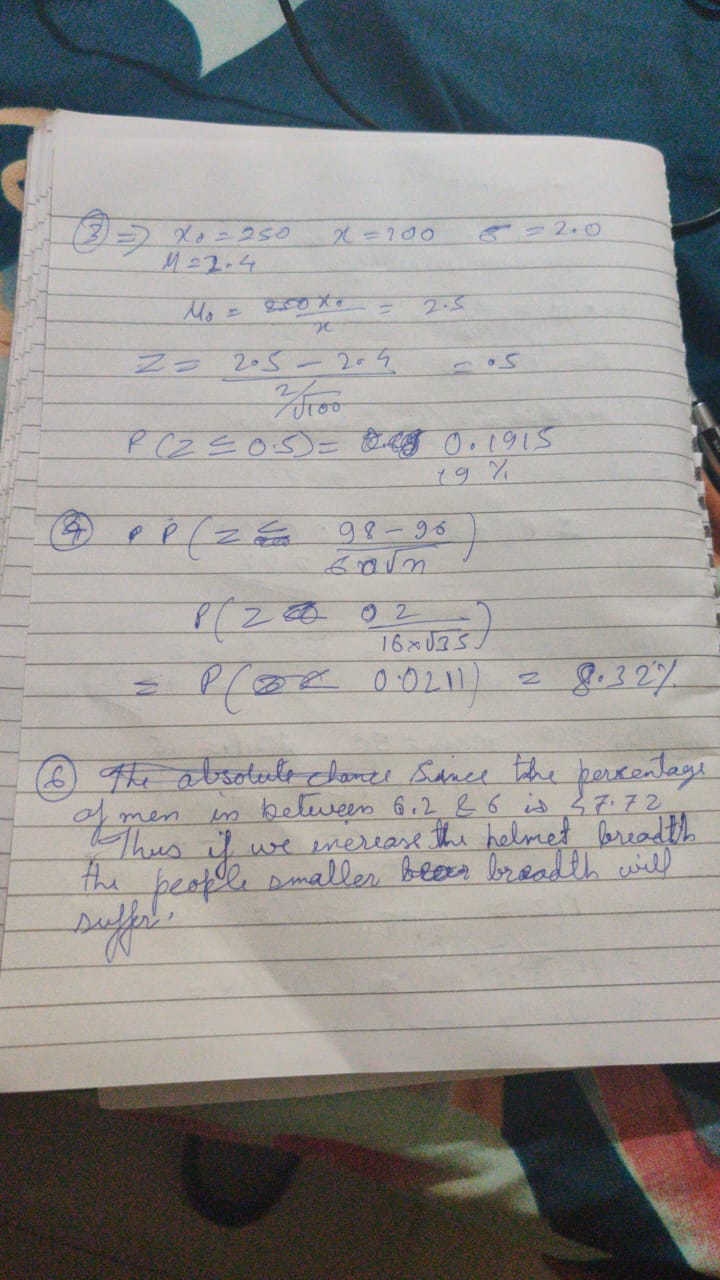 ③ ⇒ x₀ = 250 x = 100 σ = 2.0
M = 2.4
M₀ = x₀/x = 2.5
Z = (2.5 - 2.4)/(2/√100) = .5
P(Z ≤ 0.5) = 0.1915
19 %
④ P(Z ≤ (98 - 96)/(√n))
P(Z 02/(16×√35))
= P( 0.0211) = 8.32%
⑥ The absolute chance Since the percentage
of men in between 6.2 & 6 is 47.72
Thus if we increase the helmet breadth
the people smaller breadth will
suffer.